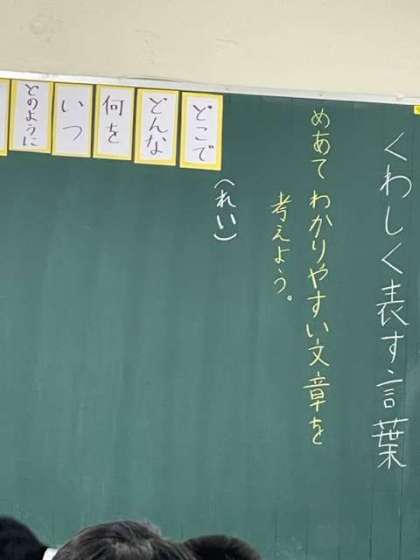 くわしく表す言葉
めあて わかりやすい文章を
考えよう。
(れい)
どこで
どんな
何を
いつ
どのように